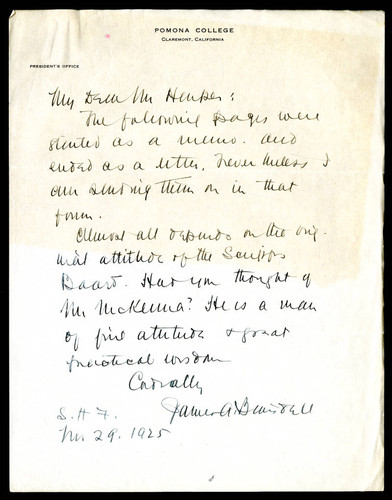 POMONA COLLEGE
CLAREMONT, CALIFORNIA
PRESIDENT'S OFFICE
My Dear Mr Harper:
The following pages were
started as a memo. and
ended as a letter. Nevertheless I
am sending them on in that
form.
Almost all depends on the orig-
inal attitude of the Scripps
Board. Have you thought of
Mr McKenna? He is a man
of fine attitude & great
practical wisdom
Cordially
James A Blaisdell
S. H. F.
29. 1925